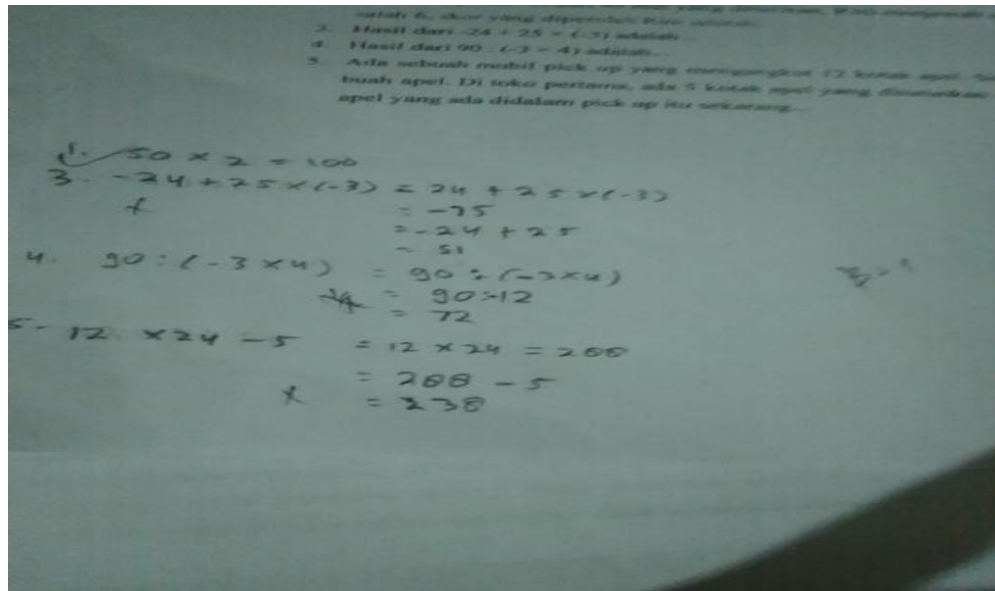 salah 6, skor yang diperoleh adalah
3. Hasil dari -24 + 25 × (-3) adalah...
4. Hasil dari 90 : (-3 × 4) adalah...
5. Ada sebuah mobil pick up yang mengangkut 12 kotak apel.
buah apel. Di toko pertama, ada 5 kotak apel yang diturunkan
apel yang ada didalam pick up itu sekarang...
1. 50 × 2 = 100
3. -24 + 25 × (-3) = 24 + 25 × (-3)
= -75
= -24 + 25
= 51
4. 90 : (-3 × 4) = 90 : (-3 × 4)
= 90 : -12
= 72
5. 12 × 24 - 5 = 12 × 24 = 288
= 288 - 5
= 238